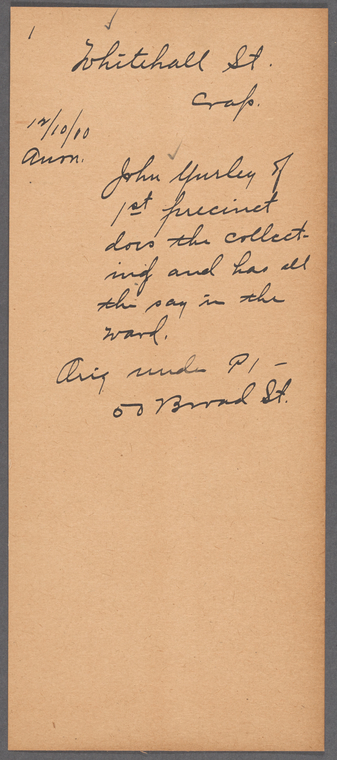 1
Whitehall St.
Crap.
12/10/00
Anon.
John Yurley of
1st precinct
does the collect-
ing and has all
the say in the
ward.
Orig under P1 -
50 Broad St.